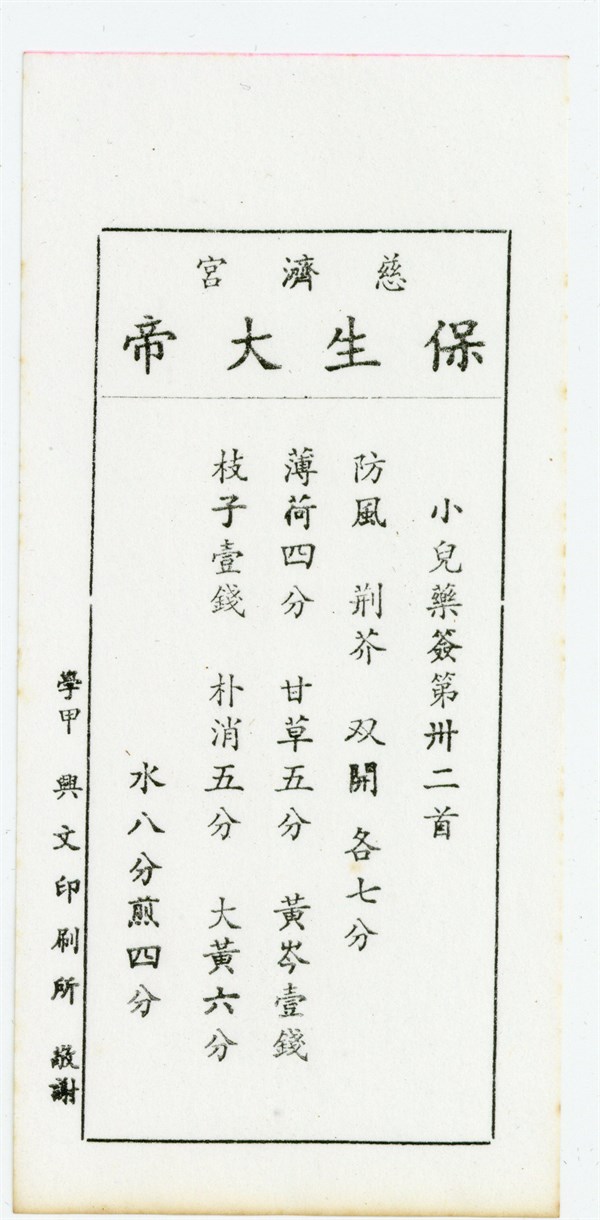 慈濟宮
保生大帝
小兒藥簽第卅二首
防風 荆芥 双開 各七分
薄荷四分 甘草五分 黃岑壹錢
枝子壹錢 朴消五分 大黃六分
水八分煎四分
學甲 興文印刷所 敬謝